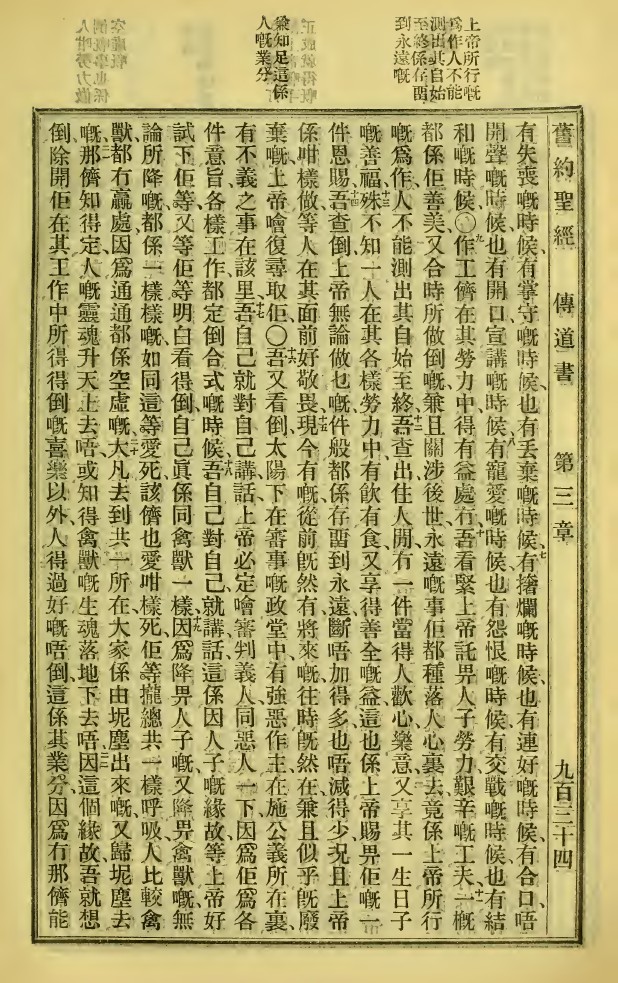 上帝所行嘅
爲作人不能
測出其自始
至終係存畱
到永遠嘅
知足這係
人嘅業分
舊約聖經 傳道書 第三章 九百三十四
有失喪嘅時候、有掌守嘅時候、也有丢棄嘅時候、七有撦爛嘅時候、也有連好嘅時候、有合口唔
開聲嘅時候、也有開口宣講嘅時候、八有寵愛嘅時候、也有怨恨嘅時候、有交戰嘅時候、也有結
和嘅時候、〇九作工儕在其勞力中得有益處冇、十吾看緊上帝託畀人子勞力艱辛嘅工夫、十一一概
都係佢善美、又合時所做倒嘅、兼且關涉後世永遠嘅事、佢都種落人心裏去、竟係上帝所行
嘅爲作、人不能測出其自始至終、十二吾查出住人間冇一件當得人歡心樂意、又享其一生日子
嘅善福、十三殊不知一人在其各樣勞力中有飲有食、又享得善全嘅益、這也係上帝賜畀佢嘅一
件恩賜、十四吾查倒上帝無論做乜嘅件般、都係存畱到永遠、斷唔加得多、也唔減得少、况且上帝
係咁樣做、等人在其面前好敬畏、十五現今有嘅、從前旣然有、將來嘅、往時旣然在、兼且似乎旣廢
棄嘅、上帝噲復尋取佢、〇十六吾又看倒太陽下在審事嘅政堂中有强惡作主、在施公義所在裏、
有不義之事在該里、十七吾自己就對自己講話、上帝必定噲審判義人同惡人一下、因爲佢爲各
件意旨、各樣工作都定倒合式嘅時候、十八吾自己對自己就講話、這係因人子嘅緣故、等上帝好
試下佢等、又等佢等明白看得倒自己眞係同禽獸一樣、十九因爲降畀人子嘅、又降畀禽獸嘅、無
論所降嘅都係一樣樣嘅、如同這等愛死、該儕也愛咁樣死、佢等攏總共一樣呼吸、人比較禽
獸都冇贏處、因爲通通都係空虛嘅、二十大凡去到共一所在、大家係由坭塵出來嘅、又歸坭塵去
嘅、那儕知得定人嘅靈魂升天上去唔、或知得禽獸嘅生魂落地下去唔、因這個緣故、吾就想
倒除開佢在其工作中所得得倒嘅喜樂以外、人得過好嘅唔倒、這係其業分、因爲冇那儕能